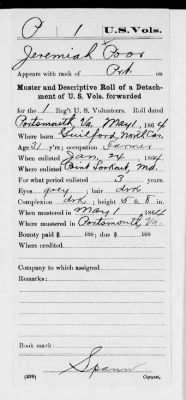 P | 1 | U.S. Vols.
Jeremiah Poor
Appears with rank of Pvt. on
Muster and Descriptive Roll of a Detach-
ment of U. S. Vols. forwarded
for the 1 Reg't U. S. Volunteers. Roll dated
Portsmouth, Va. May 1, 1864
Where born Guilford, North Car.
Age 31 y'rs; occupation Farmer
When enlisted Jan. 24, 1864.
Where enlisted Point Lookout, Md.
For what period enlisted 3 years.
Eyes grey; hair drk
Complexion drk; height 5 ft. 8 in.
When mustered in May 1, 1864
Where mustered in Portsmouth, Va.
Bounty paid $ 100; due $ 100
Where credited
Company to which assigned
Remarks:
Book mark:
(639) Copyist.